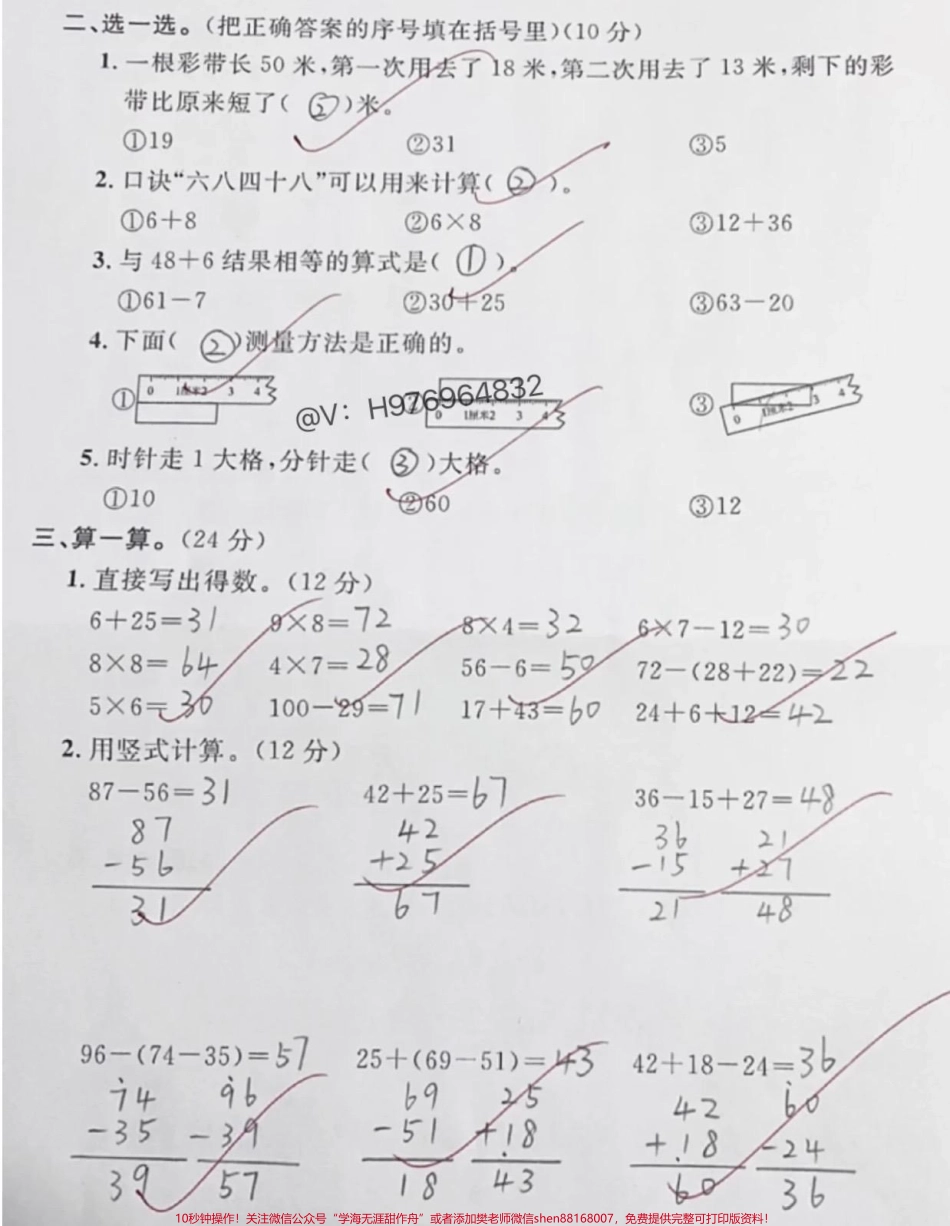 二、选一选。(把正确答案的序号填在括号里)(10 分)
1. 一根彩带长 50 米,第一次用去了 18 米,第二次用去了 13 米,剩下的彩
带比原来短了( ② )米。
①19 ②31 ③5
2. 口诀“六八四十八”可以用来计算( ② )。
①6+8 ②6×8 ③12+36
3. 与 48+6 结果相等的算式是( ① )。
①61-7 ②30+25 ③63-20
4. 下面( ② )测量方法是正确的。
① 0 1厘米2 3 4 ② 0 1厘米2 3 4 ③ 0 1厘米2 3 4
@V: H976964832
5. 时针走 1 大格,分针走( ③ )大格。
①10 ②60 ③12
三、算一算。(24 分)
1. 直接写出得数。(12 分)
6+25=31 9×8=72 8×4=32 6×7-12=30
8×8=64 4×7=28 56-6=50 72-(28+22)=22
5×6=30 100-29=71 17+43=60 24+6+12=42
2. 用竖式计算。(12 分)
87-56=31 42+25=67 36-15+27=48
87 42 36 21
-56 +25 -15 +27
31 67 21 48
96-(74-35)=57 25+(69-51)=43 42+18-24=36
74 96 69 25 42 60
-35 -39 -51 +18 +18 -24
39 57 18 43 60 36
10秒钟操作!关注微信公众号“学海无涯甜作舟”或者添加樊老师微信shen88168007,免费提供完整可打印版资料!